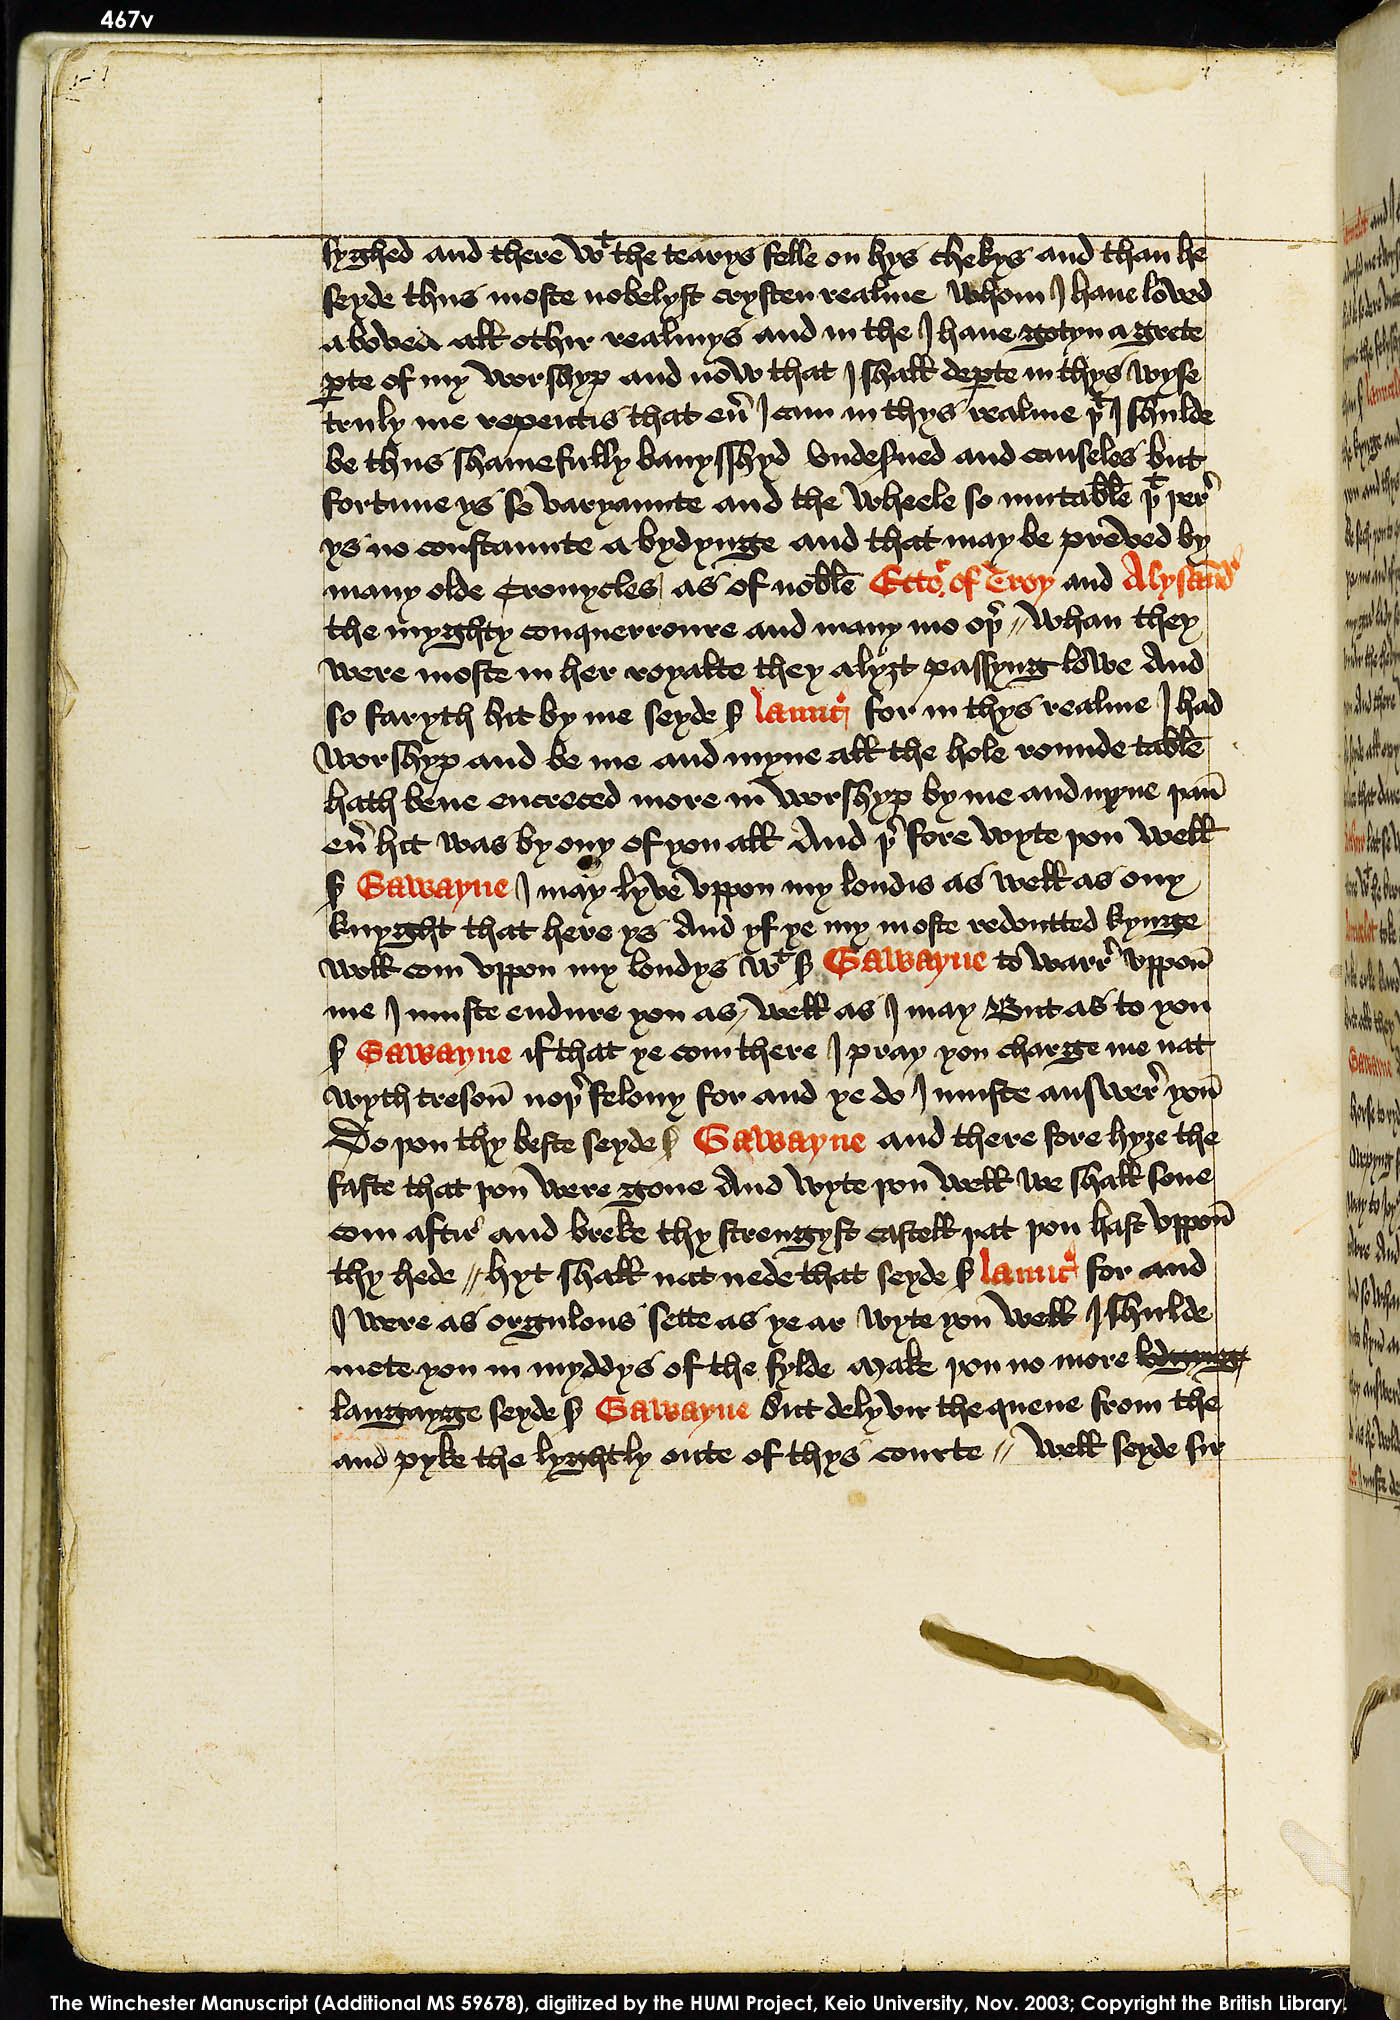 467v
syghed and there wt the tearys felle on hys chekys and than he
seyde thus moste nobelyst crysten realme whom I haue loved
aboven all othir realmys and in the I haue gotyn a grete
ꝑte of my worshyp and now that I shall deꝑte in thys wyse
truly me repentis that eu̾ I cam in thys realme þt I shulde
be thus shamefully banysshyd vndesued and causeles but
fortune ys so varyaunte and the wheele so mutable þt þer
ys no constaunte abydynge and that may be preved by
many olde Cronycles as of noble Ector of Troy and Alysaundir
the myghty conquerroure and many mo oþr // whan they
were moste in her royalte they alyȝt passyng lowe And
so faryth hit by me seyde S launc for in thys realme I had
worshyp and be me and myne all the hole rounde table
hath bene encreced more in worshyp by me and myne þan
eu̾ hit was by ony of you all And þr fore wyte þou well
S Gawayne I may lyve vppon my londis as well as ony
knyght that here ys And yf ye my moste redoutted kynge
woll com vppon my londys wt S Gawayne to warre vppon
me I muste endure you as well as I may But as to you
S Gawayne if that ye com there I pray you charge me nat
wyth treson noþr felony for and ye do I muste answer you
Do þou thy beste seyde S Gawayne and there fore hyȝe the
faste that þou were gone And wyte þou well we shall sone
com aftir and breke thy strengyst castell þat þou hast vppon
thy hede // hyt shall nat nede that seyde S launc for and
I were as orgulous sette as ye ar wyte you well I shulde
mete you in myddys of the fylde Make þou no more
langayge seyde S Gawayne but delyvir the quene from the
and pyke the lyghtly oute of thys courte // Well seyde sir
The Winchester Manuscript (Additional MS 59678), digitized by the HUMI Project, Keio University, Nov. 2003; Copyright the British Library.